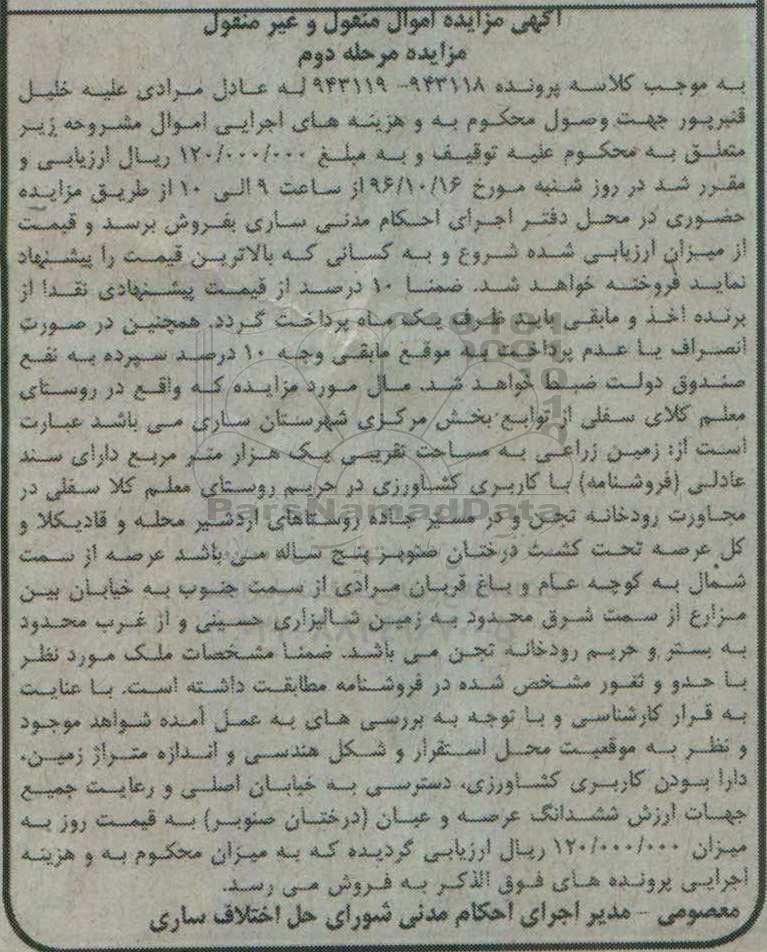 آگهی مزایده اموال منقول و غیر منقول
مزایده مرحله دوم
به موجب کلاسه پرونده ۹۴۳۱۱۸- ۹۴۳۱۱۹ له عادل مرادی علیه خلیل
قنبرپور جهت وصول محکوم به و هزینه های اجرایی اموال مشروحه زیر
متعلق به محکوم علیه توقیف و به مبلغ ۱۲۰/۰۰۰/۰۰۰ ریال ارزیابی و
مقرر شد در روز شنبه مورخ ۹۶/۱۰/۱۶ از ساعت ۹ الی ۱۰ از طریق مزایده
حضوری در محل دفتر اجرای احکام مدنی ساری بفروش برسد و قیمت
از میزان ارزیابی شده شروع و به کسانی که بالاترین قیمت را پیشنهاد
نماید فروخته خواهد شد. ضمنا ۱۰ درصد از قیمت پیشنهادی نقدا از
برنده اخذ و مابقی باید ظرف یک ماه پرداخت گردد. همچنین در صورت
انصراف یا عدم پرداخت به موقع مابقی وجه ۱۰ درصد سپرده به نفع
صندوق دولت ضبط خواهد شد. مال مورد مزایده که واقع در روستای
معلم کلای سفلی از توابع بخش مرکزی شهرستان ساری می باشد عبارت
است از: زمین زراعی به مساحت تقریبی یک هزار متر مربع دارای سند
عادلی (فروشنامه) با کاربری کشاورزی در حریم روستای معلم کلا سفلی در
مجاورت رودخانه تجن و در مسیر جاده روستاهای اردشیر محله و قادیکلا و
کل عرصه تحت کشت درختان صنوبر پنج ساله می باشد عرصه از سمت
شمال به کوچه عام و باغ قربان مرادی از سمت جنوب به خیابان بین
مزارع از سمت شرق محدود به زمین شالیزاری حسینی و از غرب محدود
به بستر و حریم رودخانه تجن می باشد. ضمنا مشخصات ملک مورد نظر
با حدو و ثغور مشخص شده در فروشنامه مطابقت داشته است. با عنایت
به قرار کارشناسی و با توجه به بررسی های به عمل آمده شواهد موجود
و نظر به موقعیت محل استقرار و شکل هندسی و اندازه متراژ زمین،
دارا بودن کاربری کشاورزی، دسترسی به خیابان اصلی و رعایت جمیع
جهات ارزش ششدانگ عرصه و عیان (درختان صنوبر) به قیمت روز به
میزان ۱۲۰/۰۰۰/۰۰۰ ریال ارزیابی گردیده که به میزان محکوم به و هزینه
اجرایی پرونده های فوق الذکر به فروش می رسد.
معصومی - مدیر اجرای احکام مدنی شورای حل اختلاف ساری
ParsNamadData